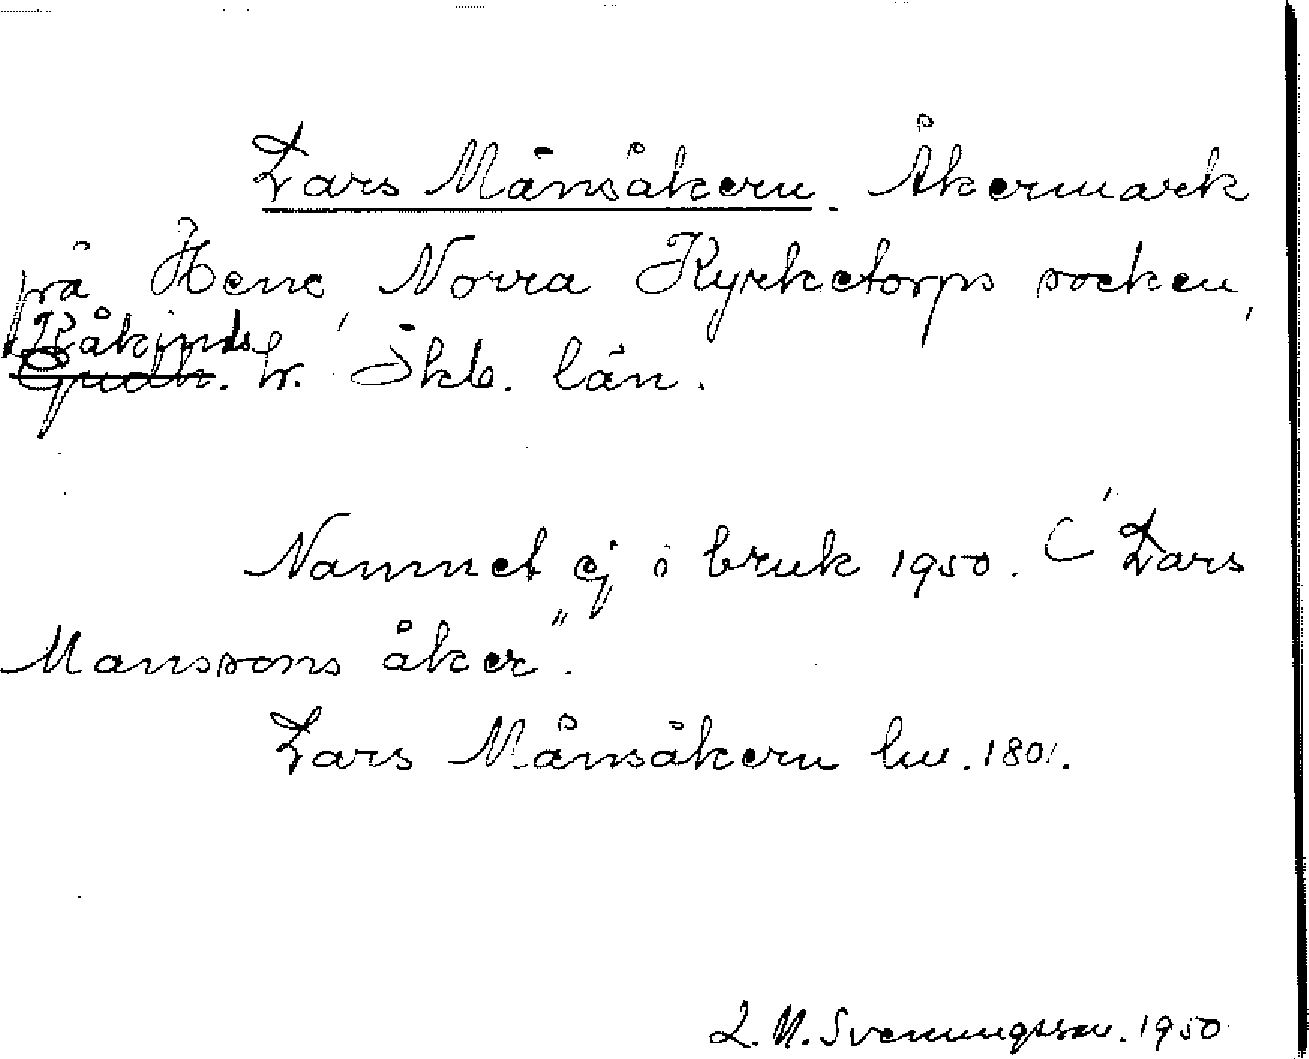 Lars Månsåkern. Åkermark
på Hene, Norra Kyrketorps socken,
Kåkinds
Gudh. hr. Skb. län.
Namnet ej i bruk 1950. "Lars
Månssons åker".
Lars Månsåkern lm. 1801.
L. M. Svenungsson. 1950